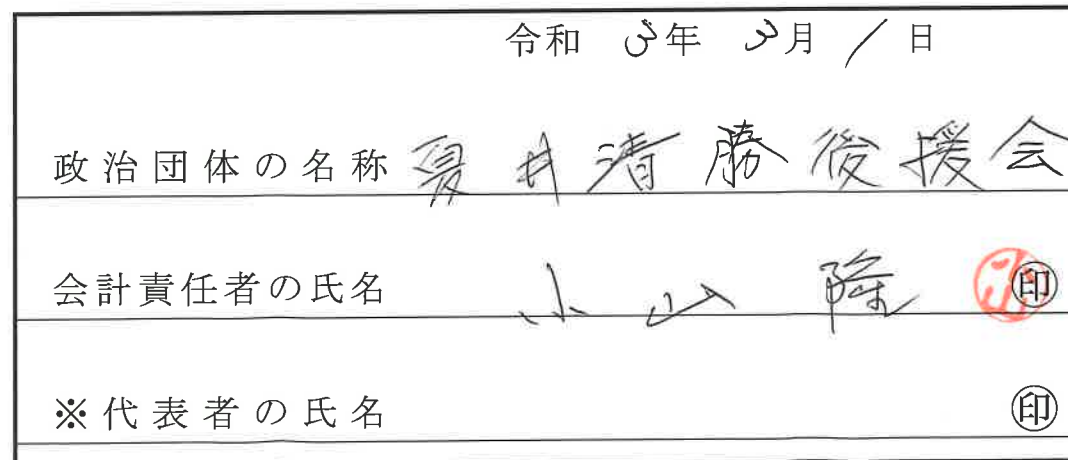 令和 3年 3月 1日
政治団体の名称 夏井清勝後援会
会計責任者の氏名 小山隆 ㊞
※代表者の氏名 ㊞